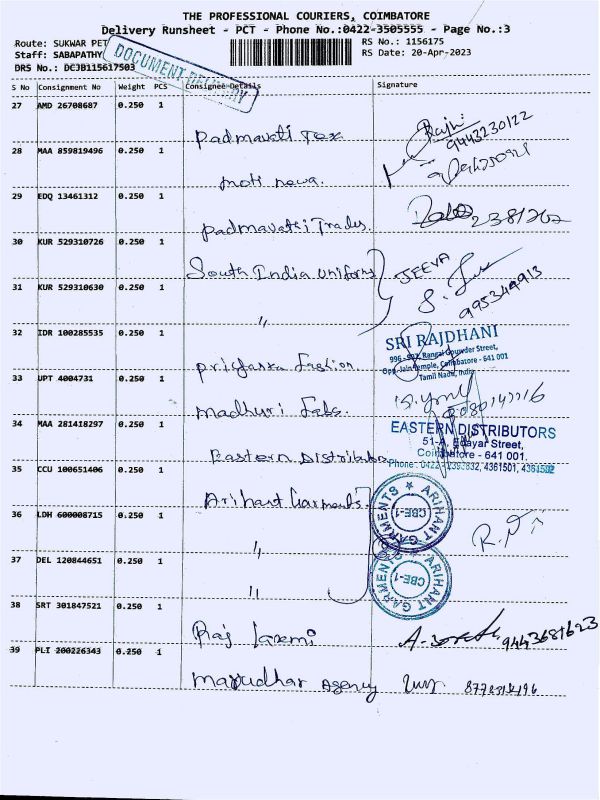 THE PROFESSIONAL COURIERS, COIMBATORE
Delivery Runsheet - PCT - Phone No.:0422-3505555 - Page No.:3
Route: SUKWAR PET
RS No.: 1156175
Staff: SABAPATHY
RS Date: 20-Apr-2023
DRS No.: DCJB115617503
DOCUMENT DELIVERY
S No Consignment No Weight PCS Consignee Details Signature
27 AMD 26708687 0.250 1
Padmavati Tex
9443230122
28 MAA 859819496 0.250 1
moti newa.
29 EDQ 13461312 0.250 1
Padmavathi Trades.
30 KUR 529310726 0.250 1
South India uniforms
JEEVA
31 KUR 529310630 0.250 1
"
32 IDR 100285535 0.250 1
Priyanka Fashion
SRI RAJDHANI
Rangai Gounder Street,
Opp. Jain Temple, Coimbatore - 641 001
Tamil Nadu, India
33 UPT 4004731 0.250 1
Madhuri Fabs.
34 MAA 281418297 0.250 1
Eastern Distributors
EASTERN DISTRIBUTORS
51-A, Edayar Street,
Coimbatore - 641 001.
Phone: 0422 - 4361501, 4361502
35 CCU 100651406 0.250 1
Arihant Garments
ARIHANT GARMENTS CBE-1
36 LDH 600008715 0.250 1
"
37 DEL 120844651 0.250 1
"
ARIHANT GARMENTS CBE-1
38 SRT 301847521 0.250 1
Raj laxmi
9443681623
39 PLI 200226343 0.250 1
Marudhar Agency